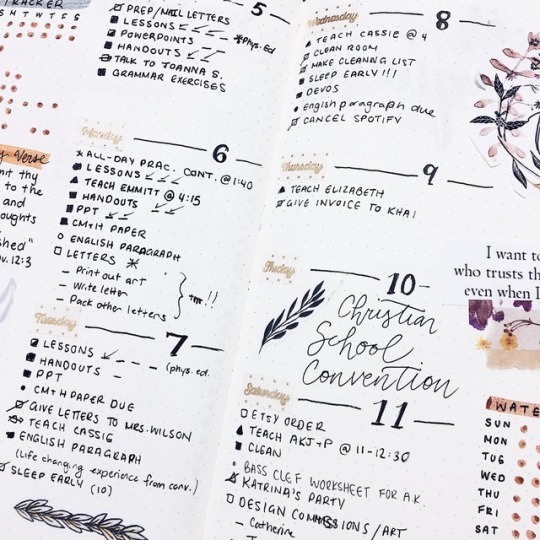 TRACKER
S M T W T F S
y Verse
mit thy
to the
and
oughts
shed"
v. 12:3
5
PREP/MAIL LETTERS
LESSONS *Phys. Ed
POWERPOINTS
HANDOUTS
TALK TO JOANNA S.
GRAMMAR EXERCISES
Monday
6
ALL-DAY PRAC. CONT. @ 1:40
LESSONS
TEACH EMMITT @ 4:15
HANDOUTS
PPT
CM+H PAPER
ENGLISH PARAGRAPH
LETTERS *
- Print out art
- Write letter
- Pack other letters
Tuesday
7
LESSONS
HANDOUTS (phys. ed.
PPT
CM+H PAPER DUE
GIVE LETTERS TO MRS. WILSON
TEACH CASSIE
ENGLISH PARAGRAPH
(life changing experience from conv.)
SLEEP EARLY (10)
Wednesday
8
TEACH CASSIE @ 4
CLEAN ROOM
MAKE CLEANING LIST
SLEEP EARLY!!!
DEVOS
english paragraph due
CANCEL SPOTIFY
Thursday
9
TEACH ELIZABETH
GIVE INVOICE TO KHAI
Friday
10
Christian
School
Convention
Saturday
11
ETSY ORDER
TEACH AKJ+P @ 11-12:30
CLEAN
BASS CLEF WORKSHEET FOR A.K
KATRINA'S PARTY
DESIGN COMMISSIONS/ART
- Catherine
I want to
who trusts th
even when I
WATE
SUN
MON
TUE
WED
THU
FRI
SAT